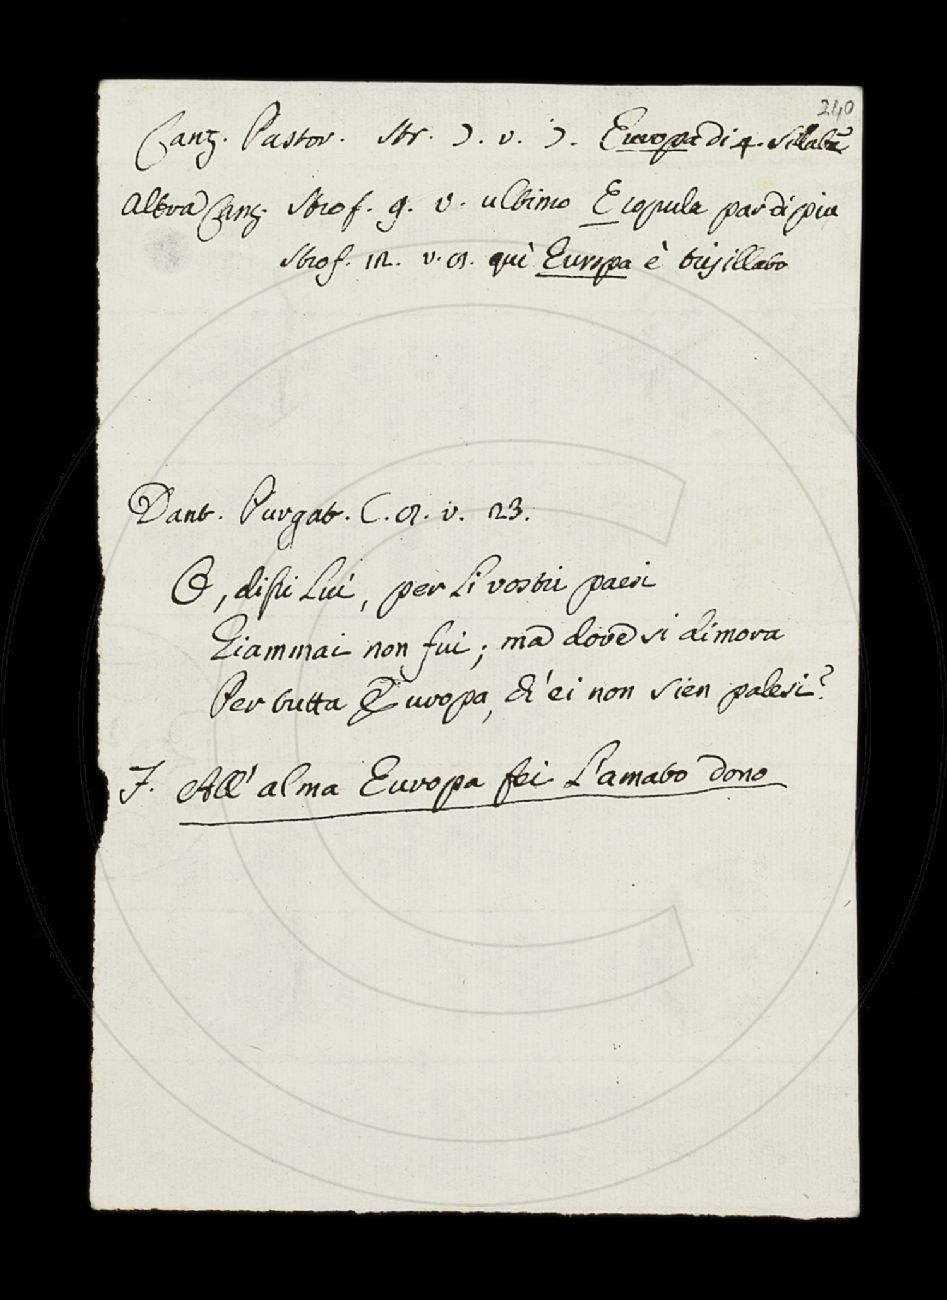 240
Canz. Pastor. Str. 3. v. 3. Europa di 4. sillabe
Altra Canz. Strof. 9. v. ultimo E copula par di piu
Strof. 12. v. 8. quì Europa è trisillabo
Dant. Purgat. C. 8. v. 123.
O, dissi Lui, per Li vostri paesi
Giammai non fui; ma dove si dimora
Per tutta Europa, ch'ei non sien palesi?
F. All' alma Europa fei L'amato dono